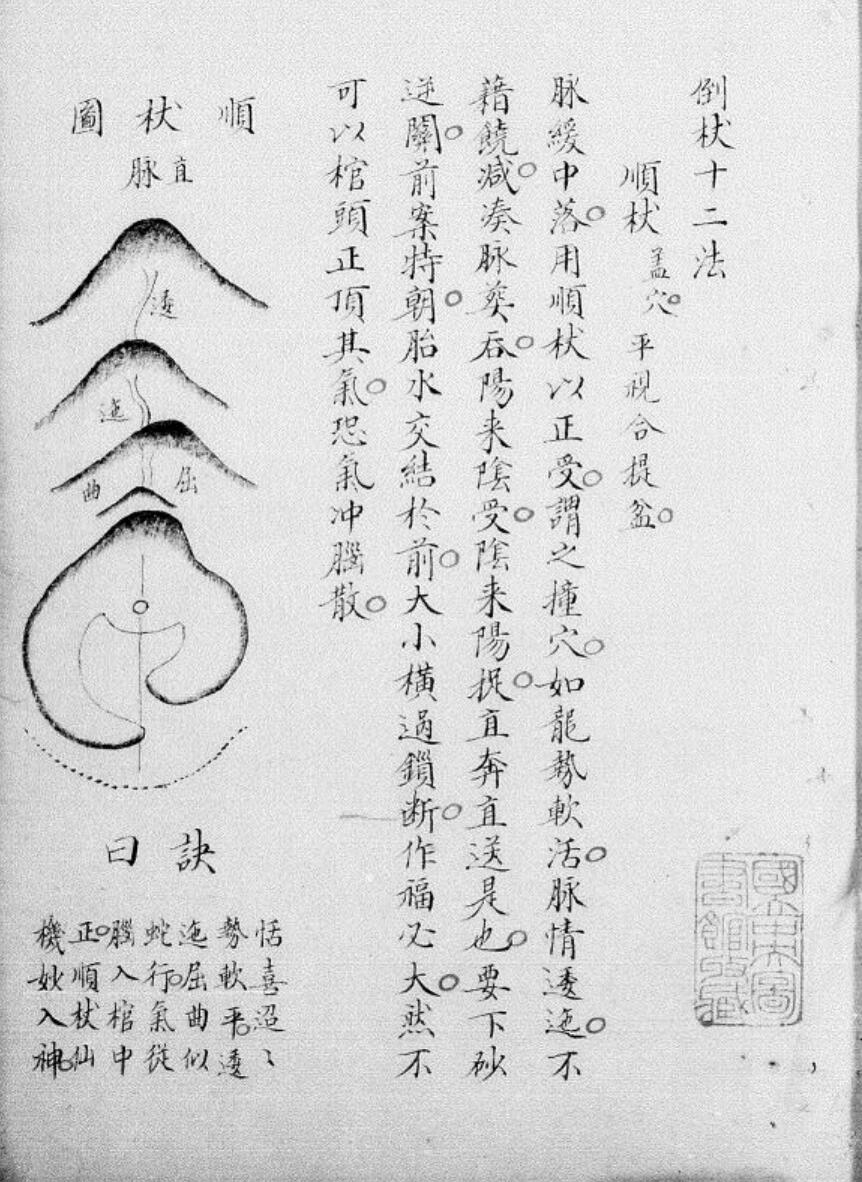 倒杖十二法
順杖 盖穴。平視合提盆。
脉緩中落。用順杖以正受。謂之撞穴。如龍勢軟活。脉情逶迤。不
藉饒減。湊脉葬。吞陽来陰受。陰来陽提。直奔直送是也。要下砂
逆關。前案特朝。胎水交結於前。大小橫過鎖断。作福必大。然不
可以棺頭正頂其氣。恐氣冲腦散。
順杖圖
直脉
逶
迤
屈
曲
訣曰
恬喜迢〻
勢軟平。逶
迤屈曲似
蛇行。氣從
腦入棺中
正。順杖仙
機妙入神。
國立中央圖
書館收藏